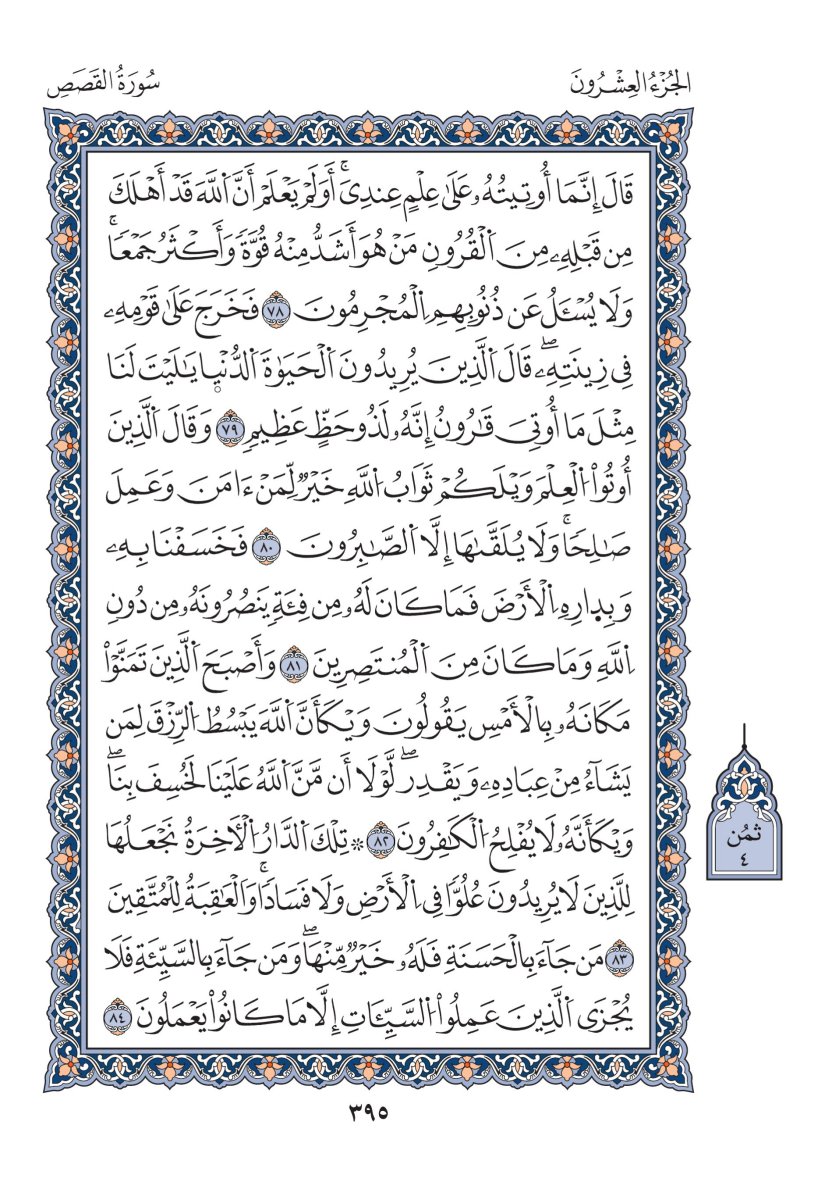 الجُزْءُ العِشْرُونَ
سُورَةُ القَصَصِ
قَالَ إِنَّمَا أُوتِيتُهُۥ عَلَىٰ عِلْمٍ عِندِيَۚ أَوَلَمْ يَعْلَمْ أَنَّ اَ۬للَّهَ قَدْ أَهْلَكَ
مِن قَبْلِهِۦ مِنَ اَ۬لْقُرُونِ مَنْ هُوَ أَشَدُّ مِنْهُ قُوَّةٗ وَأَكْثَرُ جَمْعٗاۚ
وَلَا يُسْـَٔلُ عَن ذُنُوبِهِمِ اِ۬لْمُجْرِمُونَ ٧٨ فَخَرَجَ عَلَىٰ قَوْمِهِۦ
فِي زِينَتِهِۦۖ قَالَ اَ۬لَّذِينَ يُرِيدُونَ اَ۬لْحَيَوٰةَ اَ۬لدُّنْيٜا يَٰلَيْتَ لَنَا
مِثْلَ مَا أُوتِيَ قَٰرُونُ إِنَّهُۥ لَذُو حَظٍّ عَظِيمٖ ٧٩ وَقَالَ اَ۬لَّذِينَ
أُوتُواْ اُ۬لْعِلْمَ وَيْلَكُمْ ثَوَابُ اُ۬للَّهِ خَيْرٞ لِّمَنْ ءَامَنَ وَعَمِلَ
صَٰلِحٗاۚ وَلَا يُلَقَّىٰهَا إِلَّا اَ۬لصَّٰبِرُونَ ٨٠ فَخَسَفْنَا بِهِۦ
وَبِدٜارِهِ اِ۬لْأَرْضَ فَمَا كَانَ لَهُۥ مِن فِئَةٖ يَنصُرُونَهُۥ مِن دُونِ
اِ۬للَّهِ وَمَا كَانَ مِنَ اَ۬لْمُنتَصِرِينَ ٨١ وَأَصْبَحَ اَ۬لَّذِينَ تَمَنَّوْاْ
مَكَانَهُۥ بِالْأَمْسِ يَقُولُونَ وَيْكَأَنَّ اَ۬للَّهَ يَبْسُطُ اُ۬لرِّزْقَ لِمَن
يَشَآءُ مِنْ عِبَادِهِۦ وَيَقْدِرُۖ لَوْلَا أَن مَّنَّ اَ۬للَّهُ عَلَيْنَا لَخُسِفَ بِنَاۖ
وَيْكَأَنَّهُۥ لَا يُفْلِحُ اُ۬لْكَٰفِرُونَ ٨٢ ۞ تِلْكَ اَ۬لدَّارُ اُ۬لْأٓخِرَةُ نَجْعَلُهَا
لِلَّذِينَ لَا يُرِيدُونَ عُلُوّٗا فِي اِ۬لْأَرْضِ وَلَا فَسَادٗاۚ وَالْعَٰقِبَةُ لِلْمُتَّقِينَ
٨٣ مَن جَآءَ بِالْحَسَنَةِ فَلَهُۥ خَيْرٞ مِّنْهَاۖ وَمَن جَآءَ بِالسَّيِّئَةِ فَلَا
يُجْزَى اَ۬لَّذِينَ عَمِلُواْ اُ۬لسَّيِّـَٔاتِ إِلَّا مَا كَانُواْ يَعْمَلُونَ ٨٤
ثُمُن
٤
٣٩٥